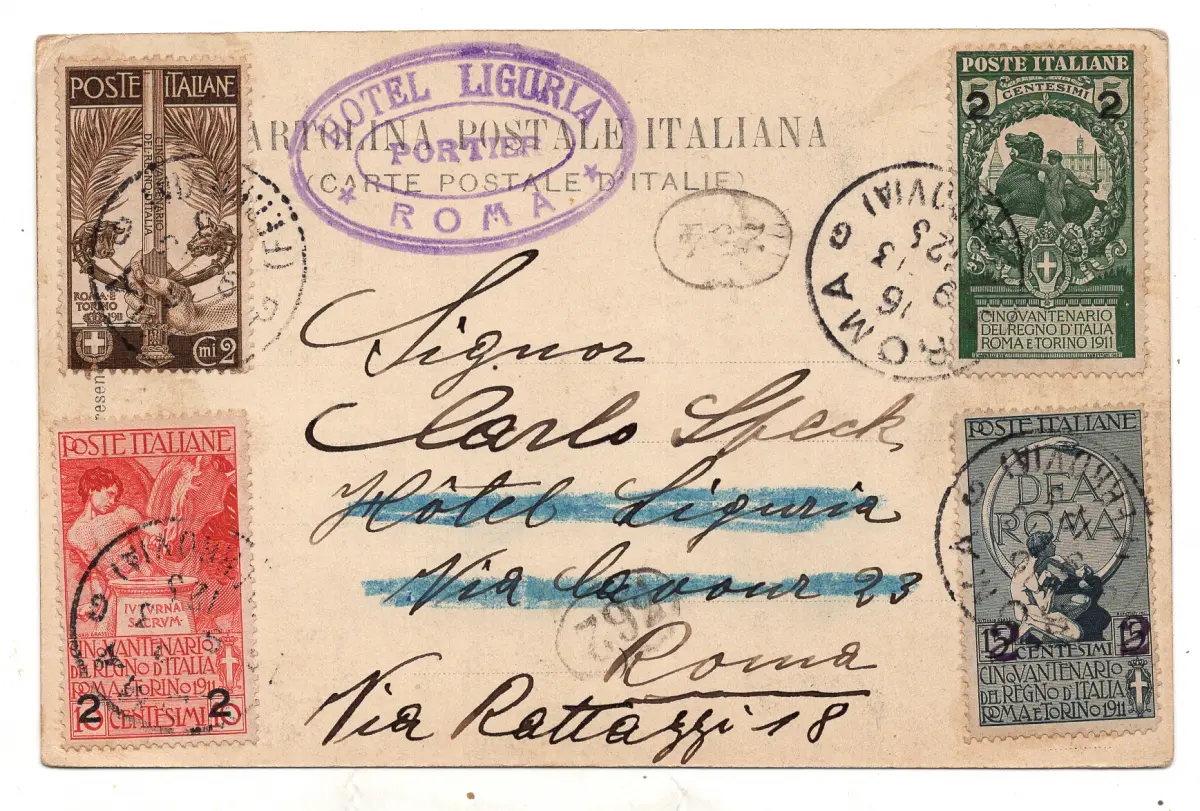 POSTE ITALIANE
CINQVANTENARIO
DEL REGNO D'ITALIA
ROMA E
TORINO
1911
Cmi 2
HOTEL LIGURIA
PORTIER
* ROMA *
CARTOLINA POSTALE ITALIANA
(CARTE POSTALE D'ITALIE)
POSTE ITALIANE
5 CENTESIMI
2 2
CINQVANTENARIO
DEL REGNO D'ITALIA
ROMA E TORINO 1911
ROMA
16
23
Signor
Carlo Speck
Hôtel Liguria
Via Cavour 23
Roma
Via Rattazzi 18
262
POSTE ITALIANE
IVTVRNAI
SACRVM
CINQVANTENARIO
DEL REGNO D'ITALIA
ROMA E TORINO 1911
2 2
10 CENTESIMI 10
POSTE ITALIANE
DEA
ROMA
15 CENTESIMI 15
CINQVANTENARIO
DEL REGNO D'ITALIA
ROMA E TORINO 1911